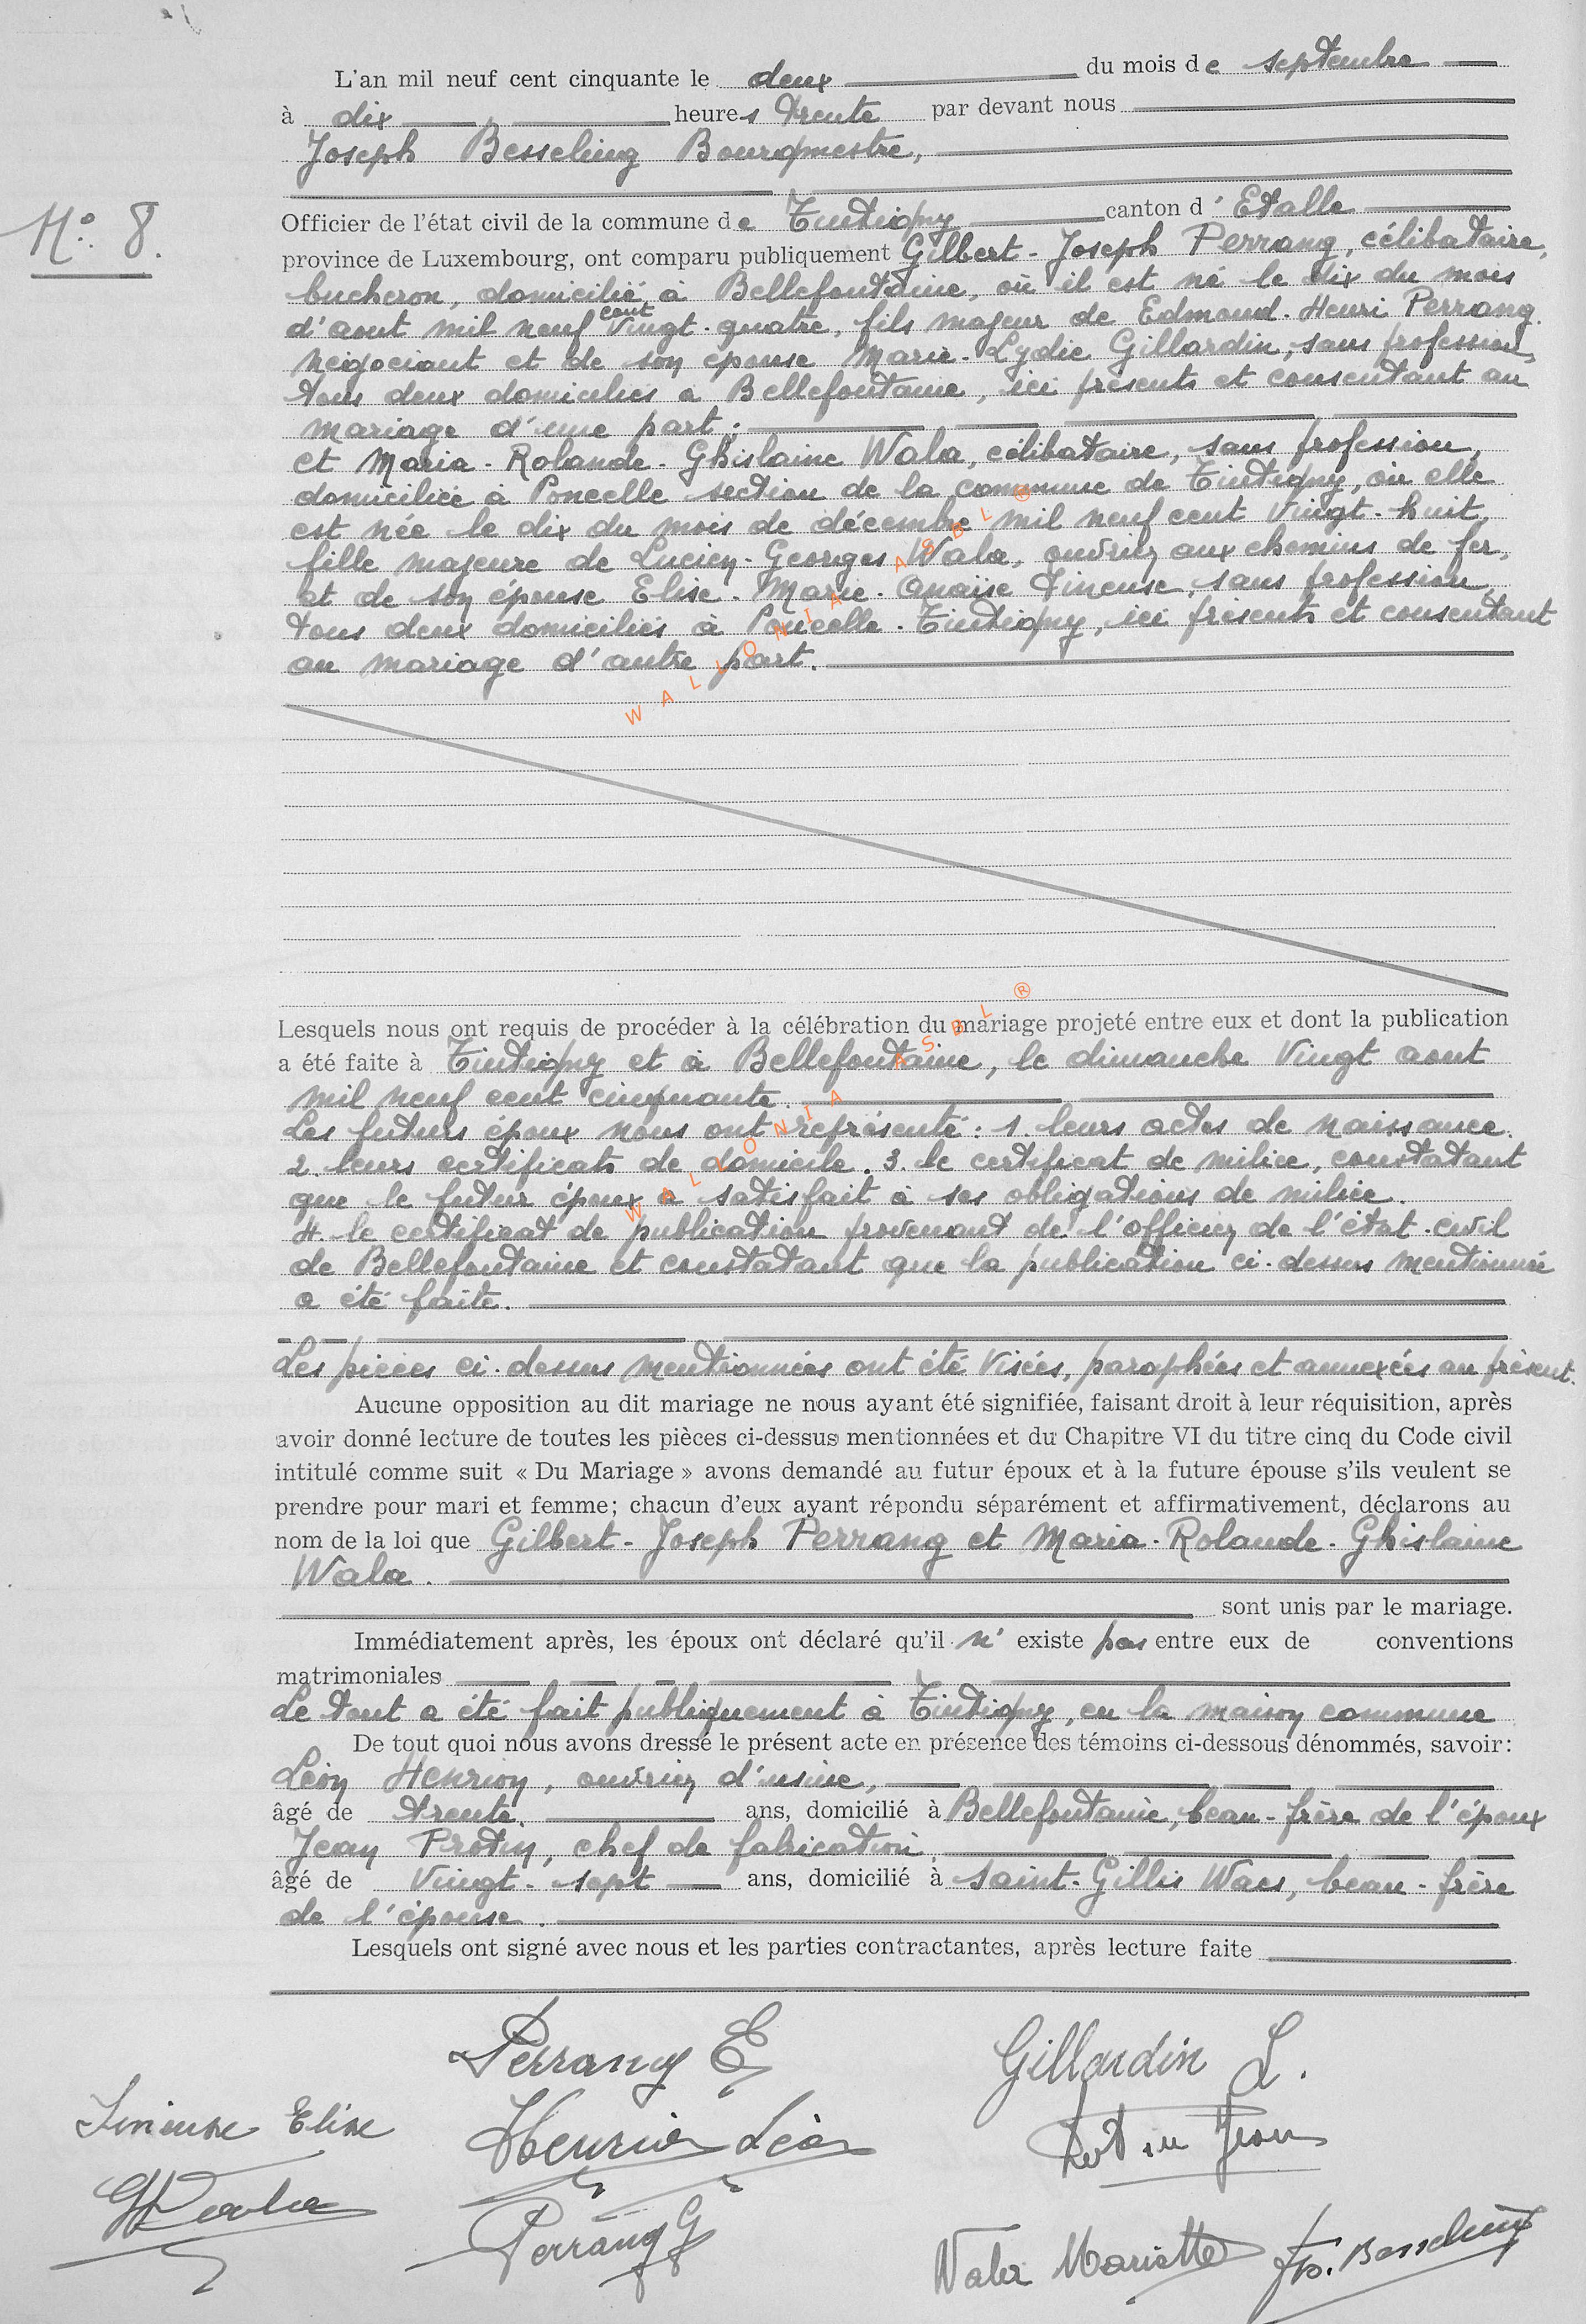 L'an mil neuf cent cinquante le deux du mois de septembre
à dix heures trente par devant nous
Joseph Besseling Bourgmestre,
N° 8.
Officier de l'état civil de la commune de Tintigny canton d'Etalle
province de Luxembourg, ont comparu publiquement Gilbert-Joseph Perrang, célibataire,
bucheron, domicilié à Bellefontaine, où il est né le dix du mois
d'aout mil neuf cent vingt-quatre, fils majeur de Edmond-Henri Perrang
négociant et de son épouse Marie-Lydie Gillardin, sans profession,
tous deux domiciliés à Bellefontaine, ici présents et consentant au
mariage d'une part;
et Maria-Rolande-Ghislaine Wala, célibataire, sans profession,
domiciliée à Poncelle section de la commune de Tintigny, où elle
est née le dix du mois de décembre mil neuf cent vingt-huit,
fille majeure de Lucien-Georges Wala, ouvrier aux chemins de fer,
et de son épouse Elise-Marie-Anaïse Tineuse, sans profession,
tous deux domiciliés à Poncelle-Tintigny, ici présents et consentant
au mariage d'autre part.
WALLONIA ASBL ®
Lesquels nous ont requis de procéder à la célébration du mariage projeté entre eux et dont la publication
a été faite à Tintigny et à Bellefontaine, le dimanche vingt aout
mil neuf cent cinquante.
Les futurs époux nous ont représenté: 1. leurs actes de naissance.
2. leurs certificats de domicile. 3. le certificat de milice, constatant
que le futur époux a satisfait à ses obligations de milice.
4. le certificat de publication provenant de l'officier de l'état-civil
de Bellefontaine et constatant que la publication ci-dessus mentionnée
a été faite.
WALLONIA ASBL ®
Les pièces ci-dessus mentionnées ont été visées, paraphées et annexées au présent.
Aucune opposition au dit mariage ne nous ayant été signifiée, faisant droit à leur réquisition, après
avoir donné lecture de toutes les pièces ci-dessus mentionnées et du Chapitre VI du titre cinq du Code civil
intitulé comme suit « Du Mariage » avons demandé au futur époux et à la future épouse s'ils veulent se
prendre pour mari et femme; chacun d'eux ayant répondu séparément et affirmativement, déclarons au
nom de la loi que Gilbert-Joseph Perrang et Maria-Rolande-Ghislaine
Wala.
sont unis par le mariage.
Immédiatement après, les époux ont déclaré qu'il n'existe pas entre eux de conventions
matrimoniales
Le tout a été fait publiquement à Tintigny, en la maison commune
De tout quoi nous avons dressé le présent acte en présence des témoins ci-dessous dénommés, savoir:
Léon Henrion, ouvrier d'usine,
âgé de trente ans, domicilié à Bellefontaine, beau-frère de l'époux
Jean Protin, chef de fabrication,
âgé de vingt-sept ans, domicilié à Saint-Gillis Waes, beau-frère
de l'épouse.
Lesquels ont signé avec nous et les parties contractantes, après lecture faite
Perrang E Gillardin L.
Tineuse Elise Henrion Léon Protin Jean
Wala Perrang G
Wala Mariette Jos. Besseling